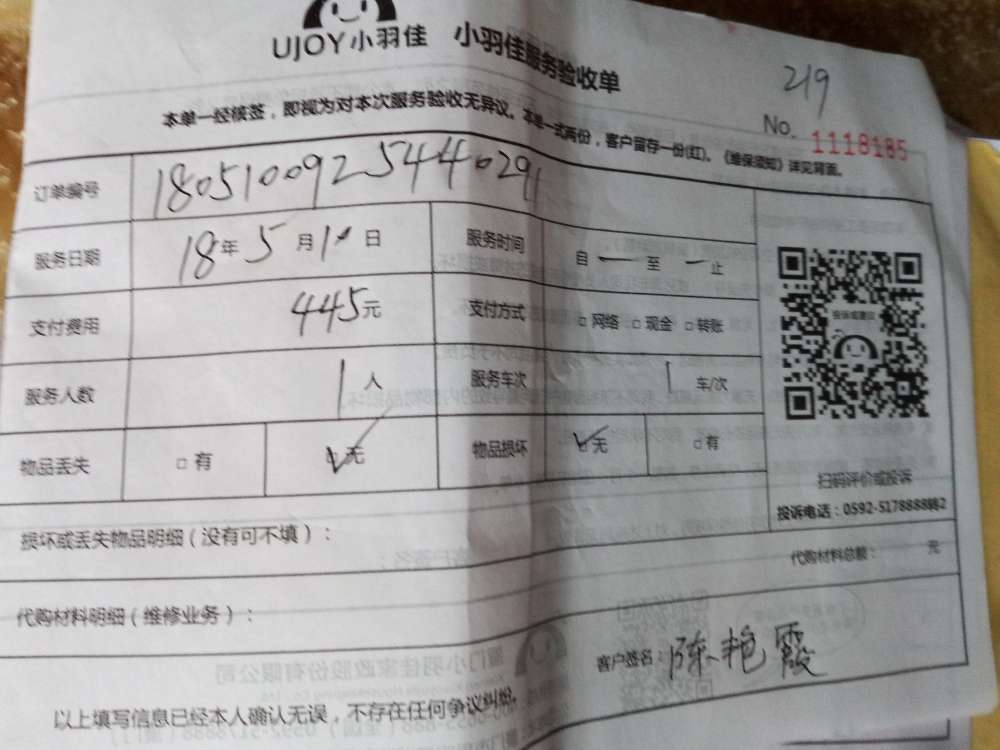 UJOY小羽佳 小羽佳服务验收单
219
No. 1118185
本单一经核签，即视为对本次服务验收无异议。本单一式两份，客户留存一份(红)。《维保须知》详见背面。
订单编号 18051009254440291
服务日期 18年5月10日 服务时间 自 — 至 — 止
支付费用 445元 支付方式 □网络 □现金 □转账
服务人数 1人 服务车次 1 车/次
物品丢失 □有 ☑无 物品损坏 ☑无 □有
投诉或建议
扫码评价或投诉
投诉电话：0592-5178888转2
损坏或丢失物品明细（没有可不填）：
代购材料总额： 元
代购材料明细（维修业务）：
客户签名：陈艳霞
以上填写信息已经本人确认无误，不存在任何争议纠纷。